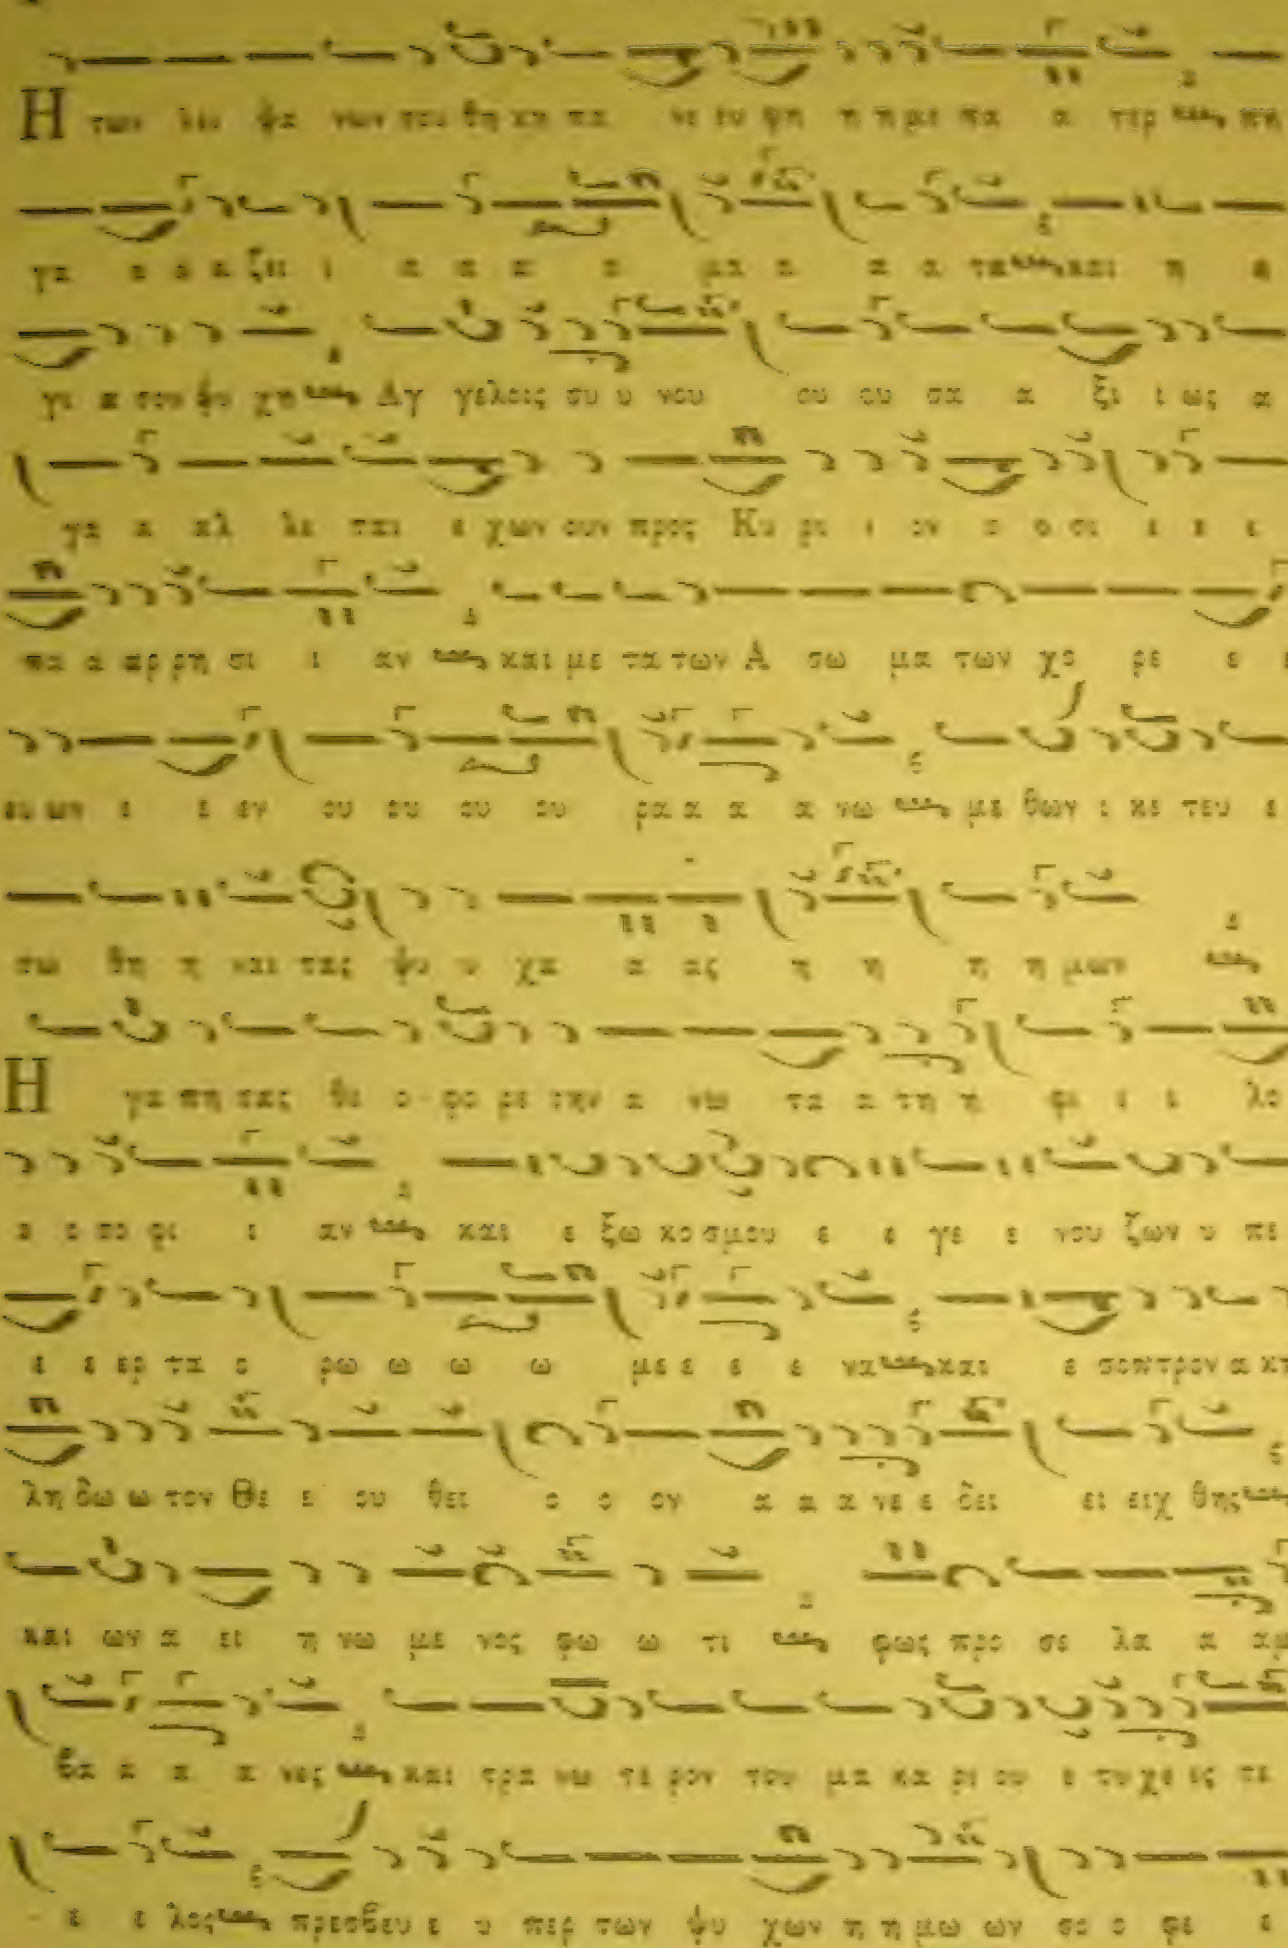 Η των λει ψα νων σου θη κη πα νε ευ φη η η με πα α τερ πη
γα α α α ζει ι α α α α μα α α α τα και η α
γι α σου ψυ χη Αγ γελοις συ υ νου ου ου σα α ξι ι ως α
γα α αλ λε ται ε χων ουν προς Κυ ρι ι ον ο ο σι ε ε ε
πα α αρ ρη σι ι αν και με τα των Α σω μα των χο ρε ε
ευ ων ε ε εν ου ου ου ου ρα α α α νω με θων ι κε τευ ε
σω θη η ναι τας ψυ υ χα α ας η η η η μων
Η γα πη σας θε ο φο ρε την α νω τα α τη η φι ι ι λο
ο ο σο φι ι αν και ε ξω κοσμου ε ε γε ε νου ζων υ πε
ε ε ερ τα ο ρω ω ω ω με ε ε ε να και ε σοπτρον α κη
λη δω ω τον Θε ε ου θει ο ο ον α α α νε ε δει ει ειχ θης
και ων α ει η νω με νος φω ω τι φως προ σε λα α αμ
βα α α α νες και τρα νω τε ρον του μα κα ρι ου ε τυχε ες τε
ε ε λος πρεσβευ ε υ περ των ψυ χων η η μω ων σο ο φε ε